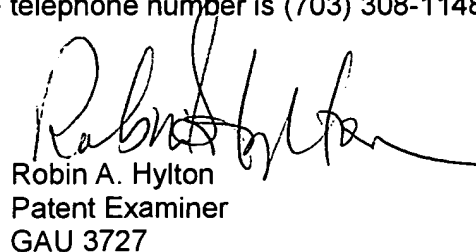 telephone number is (703) 308-1148
Robin A. Hylton
Robin A. Hylton
Patent Examiner
GAU 3727